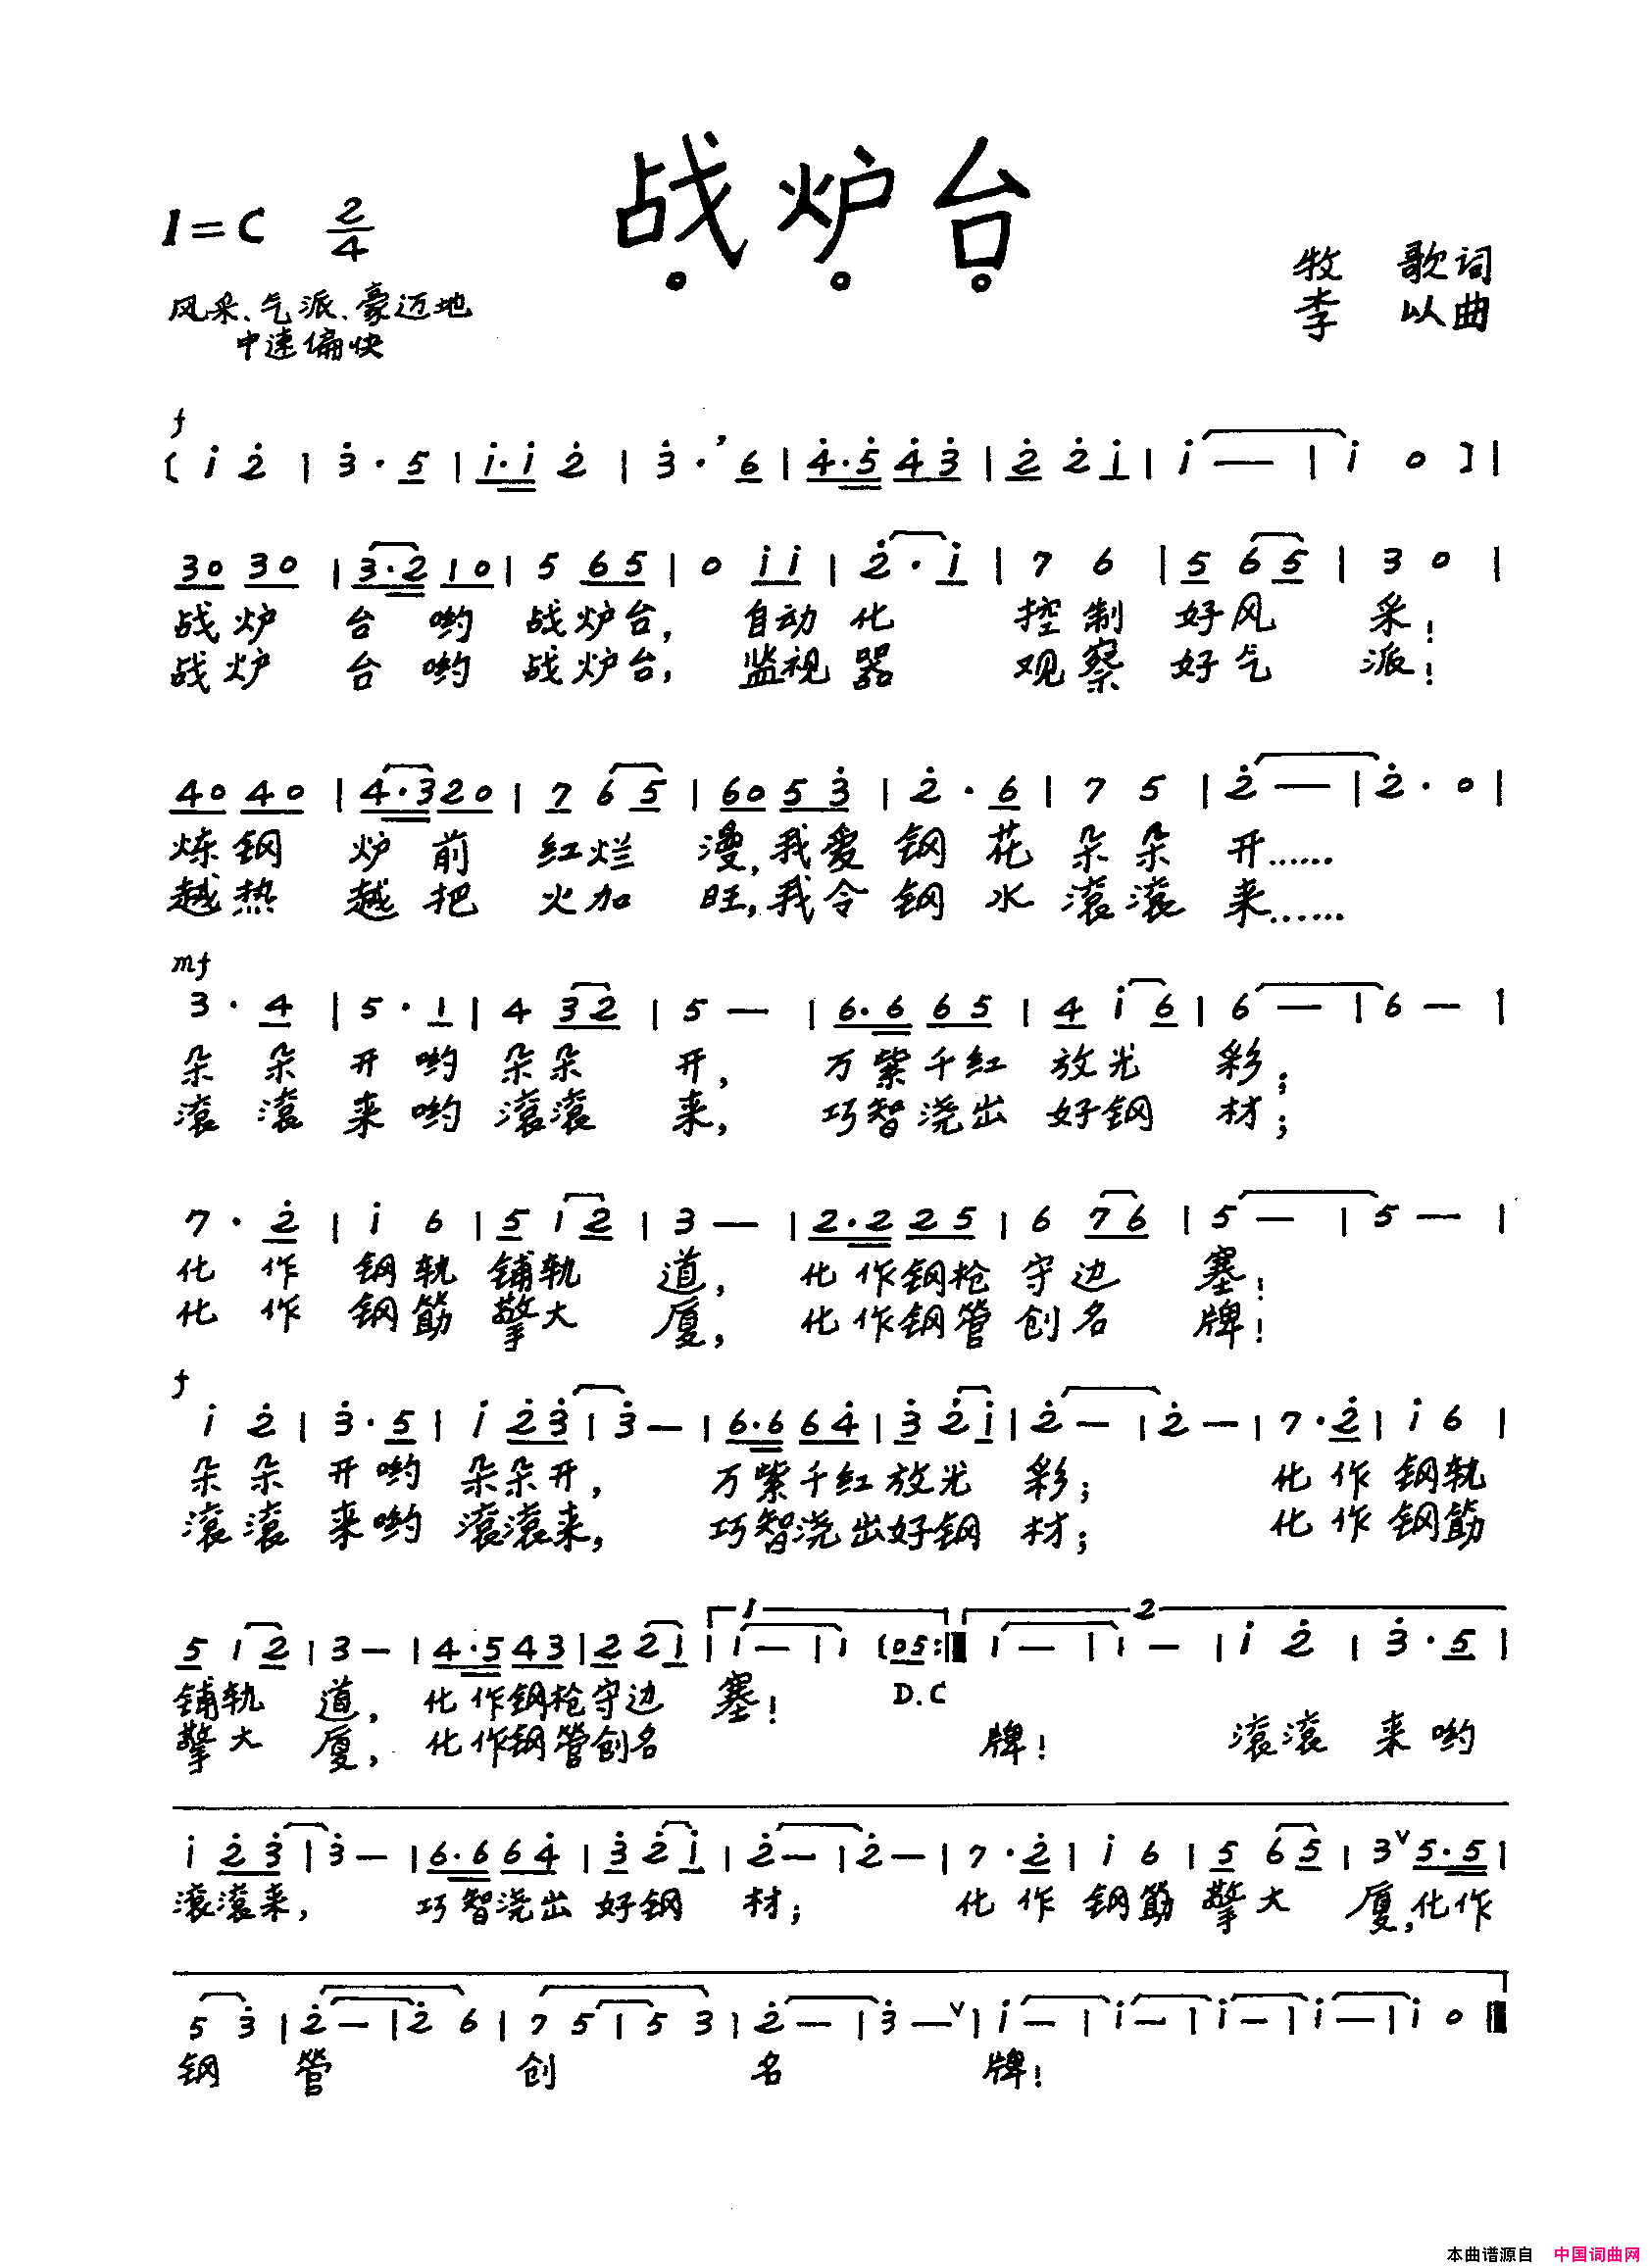 战炉台
1=C 2/4
牧 歌词
风采、气派、豪迈地
李 以曲
中速偏快
f
(i 2 | 3· 5 | i·i 2 | 3·' 6 | 4·5 4 3 | 2 2 i | i — | i 0 )|
30 30 | 3·2 10 | 5 65 | 0 i i | 2· i | 7 6 | 5 6 5 | 3 0 |
战炉 台哟 战炉台, 自动化 控制 好风 采!
战炉 台哟 战炉台, 监视器 观察 好气 派!
40 40 | 4·3 20 | 7 6 5 | 60 5 3 | 2· 6 | 7 5 | 2 — | 2· 0 |
炼钢 炉前 红烂 漫,我爱 钢花 朵朵 开……
越热 越把 火加 旺,我令 钢水 滚滚 来……
mf
3· 4 | 5· 1 | 4 32 | 5 — | 6·6 65 | 4 i 6 | 6 — | 6 — |
朵朵 开哟 朵朵 开, 万紫千红 放光 彩;
滚滚 来哟 滚滚 来, 巧智浇出 好钢 材;
7· 2 | i 6 | 5 1 2 | 3 — | 2·2 25 | 6 76 | 5 — | 5 — |
化作 钢轨 铺轨 道, 化作钢枪 守边 塞!
化作 钢筋 擎大 厦, 化作钢管 创名 牌!
f
i 2 | 3· 5 | i 23 | 3 — | 6·6 64 | 3 2 i | 2 — | 2 — | 7· 2 | i 6 |
朵朵 开哟 朵朵开, 万紫千红放光 彩; 化作 钢轨
滚滚 来哟 滚滚来, 巧智浇出好钢 材; 化作 钢筋
1 2
5 1 2 | 3 — | 4·5 43 | 2 2 1 | 1 — | 1 (05 :| 1 — | 1 — | i 2 | 3· 5 |
铺轨 道, 化作钢枪守边 塞! D.C
擎大 厦, 化作钢管创名 牌! 滚滚 来哟
i 23 | 3 — | 6·6 64 | 3 2 i | 2 — | 2 — | 7· 2 | i 6 | 5 6 5 | 3 ∨ 5·5 |
滚滚来, 巧智浇出 好钢 材; 化作 钢筋 擎大 厦,化作
5 3 | 2 — | 2 6 | 7 5 | 5 3 | 2 — | 3 — ∨ | i — | i — | i — | i — | i 0 ‖
钢 管 创 名 牌!
本曲谱源自 中国词曲网